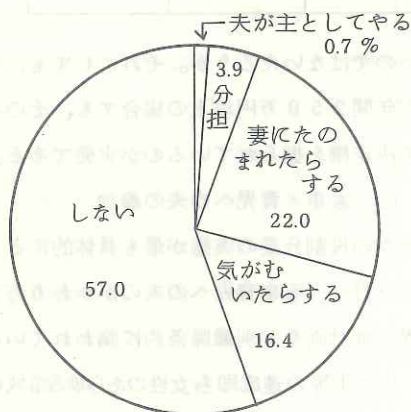 夫が主としてやる
0.7 %
3.9
分
担
妻にたの
まれたら
する
22.0
気がむ
いたらする
16.4
しない
57.0